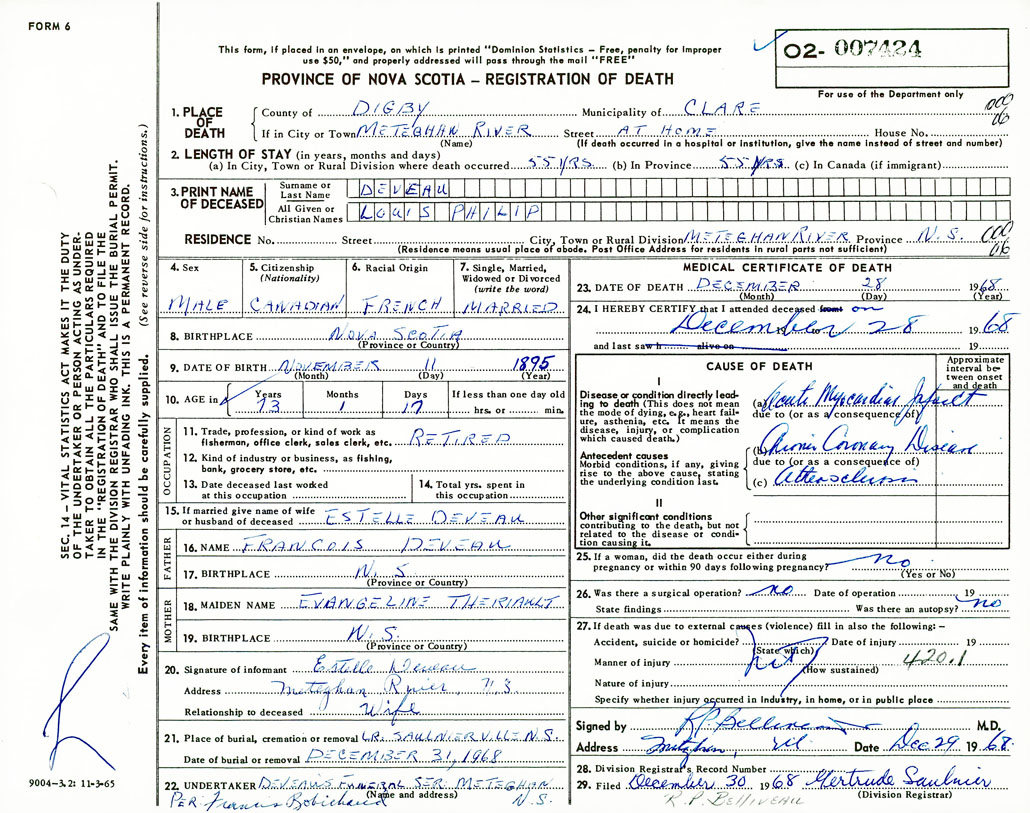 FORM 6
This form, if placed in an envelope, on which is printed "Dominion Statistics – Free, penalty for improper
use $50," and properly addressed will pass through the mail "FREE"
O2- 007424
PROVINCE OF NOVA SCOTIA – REGISTRATION OF DEATH
For use of the Department only
1. PLACE OF DEATH County of DIGBY Municipality of CLARE
If in City or Town METEGHAN RIVER Street AT HOME House No.
(Name) (If death occurred in a hospital or institution, give the name instead of street and number)
2. LENGTH OF STAY (in years, months and days)
(a) In City, Town or Rural Division where death occurred 55 YRS (b) In Province 55 YRS (c) In Canada (if immigrant)
3. PRINT NAME OF DECEASED Surname or Last Name DEVEAU
All Given or Christian Names LOUIS PHILIP
RESIDENCE No. Street City, Town or Rural Division METEGHAN RIVER Province N.S.
(Residence means usual place of abode. Post Office Address for residents in rural parts not sufficient)
SEC. 14 – VITAL STATISTICS ACT MAKES IT THE DUTY
OF THE UNDERTAKER OR PERSON ACTING AS UNDER-
TAKER TO OBTAIN ALL THE PARTICULARS REQUIRED
IN THE "REGISTRATION OF DEATH" AND TO FILE THE
SAME WITH THE DIVISION REGISTRAR WHO SHALL ISSUE THE BURIAL PERMIT.
WRITE PLAINLY WITH UNFADING INK. THIS IS A PERMANENT RECORD.
Every item of information should be carefully supplied. (See reverse side for instructions.)
4. Sex 5. Citizenship (Nationality) 6. Racial Origin 7. Single, Married, Widowed or Divorced (write the word)
MALE CANADIAN FRENCH MARRIED
8. BIRTHPLACE NOVA SCOTIA
(Province or Country)
9. DATE OF BIRTH NOVEMBER 11 1895
(Month) (Day) (Year)
10. AGE in Years Months Days If less than one day old
73 1 17 hrs. or min.
OCCUPATION
11. Trade, profession, or kind of work as
fisherman, office clerk, sales clerk, etc. RETIRED
12. Kind of industry or business, as fishing,
bank, grocery store, etc.
13. Date deceased last worked
at this occupation
14. Total yrs. spent in
this occupation
15. If married give name of wife
or husband of deceased ESTELLE DEVEAU
FATHER
16. NAME FRANCOIS DEVEAU
17. BIRTHPLACE N.S.
(Province or Country)
MOTHER
18. MAIDEN NAME EVANGELINE THERIAULT
19. BIRTHPLACE N.S.
(Province or Country)
20. Signature of informant Estelle Deveau
Address Meteghan River, N.S.
Relationship to deceased Wife
21. Place of burial, cremation or removal LR. SAULNIERVILLE N.S.
Date of burial or removal DECEMBER 31, 1968
22. UNDERTAKER DEVEAU'S FUNERAL SER. METEGHAN
(Name and address) N.S.
PER:
9004–3.2: 11-3-65
MEDICAL CERTIFICATE OF DEATH
23. DATE OF DEATH DECEMBER 28 1968
(Month) (Day) (Year)
24. I HEREBY CERTIFY that I attended deceased from on
December 19 to 28 19 68
and last saw h alive on 19
CAUSE OF DEATH
Approximate
interval be-
tween onset
and death
I
Disease or condition directly lead-
ing to death (This does not mean
the mode of dying, e.g., heart fail-
ure, asthenia, etc. It means the
disease, injury, or complication
which caused death.)
(a) Acute Myocardial Infarct
due to (or as a consequence of)
Antecedent causes
Morbid conditions, if any, giving
rise to the above cause, stating
the underlying condition last.
(b) Chronic Coronary Disease
due to (or as a consequence of)
(c)
II
Other significant conditions
contributing to the death, but not
related to the disease or condi-
tion causing it.
25. If a woman, did the death occur either during
pregnancy or within 90 days following pregnancy? no
(Yes or No)
26. Was there a surgical operation? no Date of operation 19
State findings Was there an autopsy? no
27. If death was due to external causes (violence) fill in also the following: –
Accident, suicide or homicide? Date of injury 19
(State which)
Manner of injury 420.1
(How sustained)
Nature of injury
Specify whether injury occurred in Industry, in home, or in public place
Signed by R P Belliveau M.D.
Address Meteghan, Date Dec 29 1968
28. Division Registrar's Record Number
29. Filed December 30 1968 Gertrude Saulnier
(Division Registrar)
R.P. BELLIVEAU